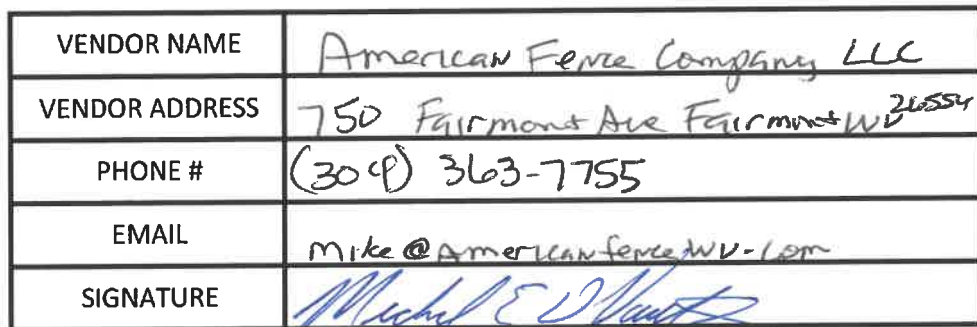 VENDOR NAME American Fence Company LLC
VENDOR ADDRESS 750 Fairmont Ave Fairmont WV 26554
PHONE # (304) 363-7755
EMAIL Mike@Americanfencewv.com
SIGNATURE Michael E